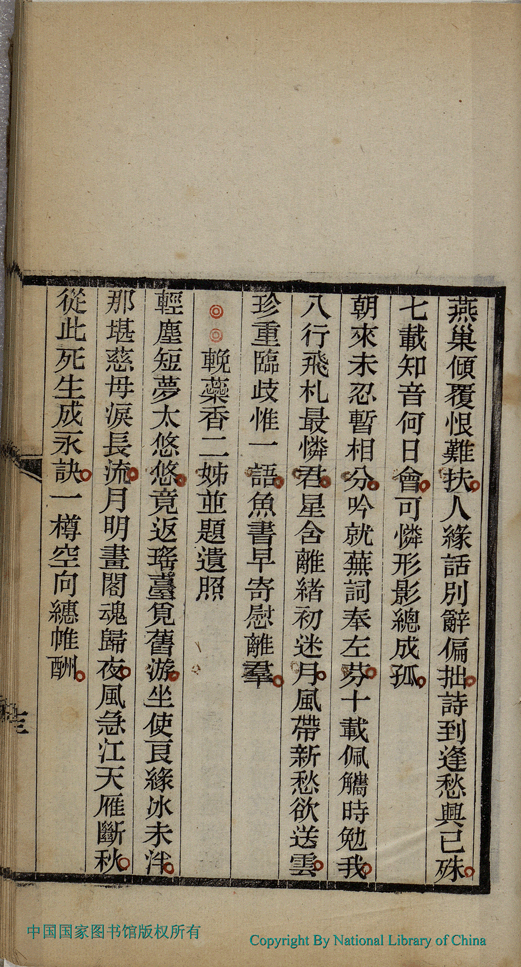 燕巢傾覆恨難扶人緣話別辭偏拙詩到逢愁興已殊
七載知音何日會可憐形影總成孤
朝來未忍暫相分吟就蕪詞奉左芬十載佩觿時勉我
八行飛札最憐君星舍離緒初迷月風帶新愁欲送雲
珍重臨歧惟一語魚書早寄慰離羣
輓蘂香二姊並題遺照
輕塵短夢太悠悠竟返瑤臺覓舊游坐使良緣冰未泮
那堪慈母淚長流月明畫閣魂歸夜風急江天雁斷秋
從此死生成永訣一樽空向繐帷酬
中国国家图书馆版权所有
Copyright By National Library of China